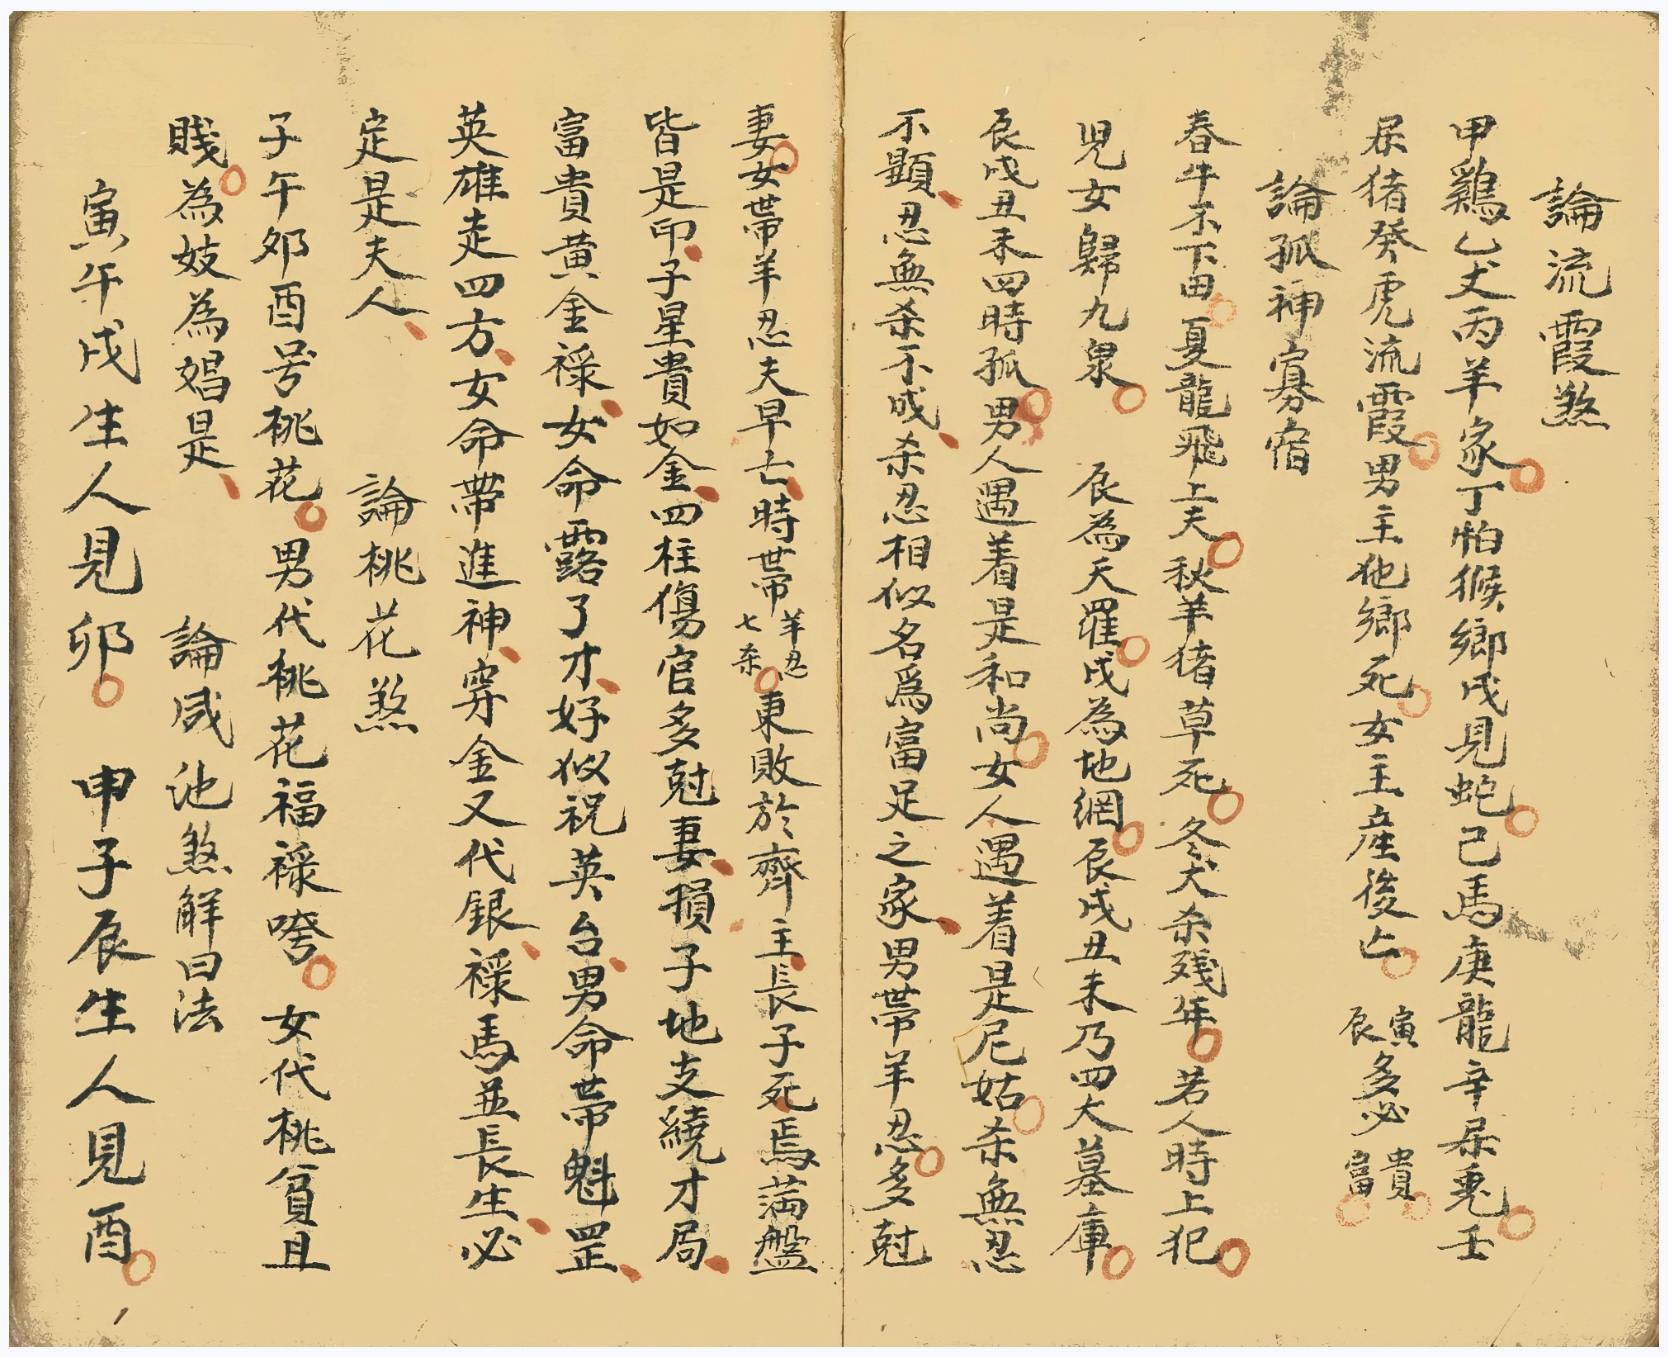 論流霞煞
甲鷄乙犬丙羊家丁怕猴鄉戊見蛇己馬庚龍辛屎兎壬
屎猪癸虎流霞男主他鄉死女主產後亡寅辰多必貴富
論孤神寡宿
春牛不下田夏龍飛上天秋羊猪草死冬犬杀残年若人時上犯
児女歸九泉 辰為天羅戌為地網辰戌丑未乃四大墓庫
辰戌丑未四時孤男人遇着是和尚女人遇着是尼姑杀無忍
不顕忍無杀不成杀忍相似名爲富足之家男帯羊忍多尅
妻女帯羊忍夫早亡時帯羊忍七杀東敗於齊主長子死焉満盤
皆是印子星貴如金四柱傷官多尅妻損子地支繞才局
富貴黃金祿女命露了才好似祝英台男命帯魁罡
英雄走四方女命帶進神穿金又代銀祿馬並長生必
定是夫人 論桃花煞
子午夘酉号桃花男代桃花福祿咵女代桃貧且
賤為妓為娼是 論咸池煞解曰法
寅午戌生人見卯 申子辰生人見酉